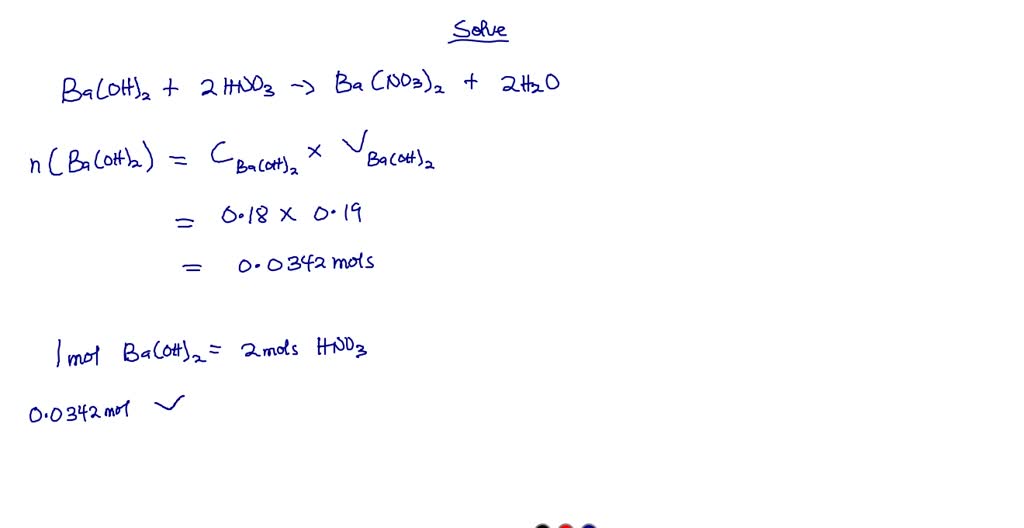 Solve
Ba(OH)₂ + 2HNO₃ → Ba(NO₃)₂ + 2H₂O
n(Ba(OH)₂) = C Ba(OH)₂ × V Ba(OH)₂
= 0.18 × 0.19
= 0.0342 mols
1 mol Ba(OH)₂ = 2 mols HNO₃
0.0342 mol